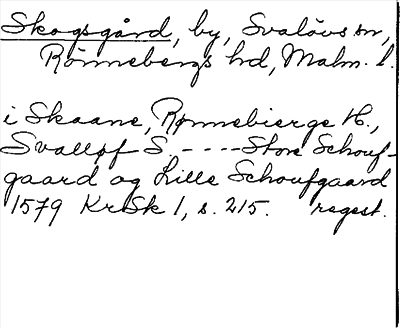 Skogsgård, by, Svalövs sn,
Rönnebergs hd, Malm. l.
i Skaane, Rønnebierge H.,
Svalløf S - - - - Store Schouf-
gaard og Lille Schoufgaard
1579 KrSk 1, s. 215. regest.